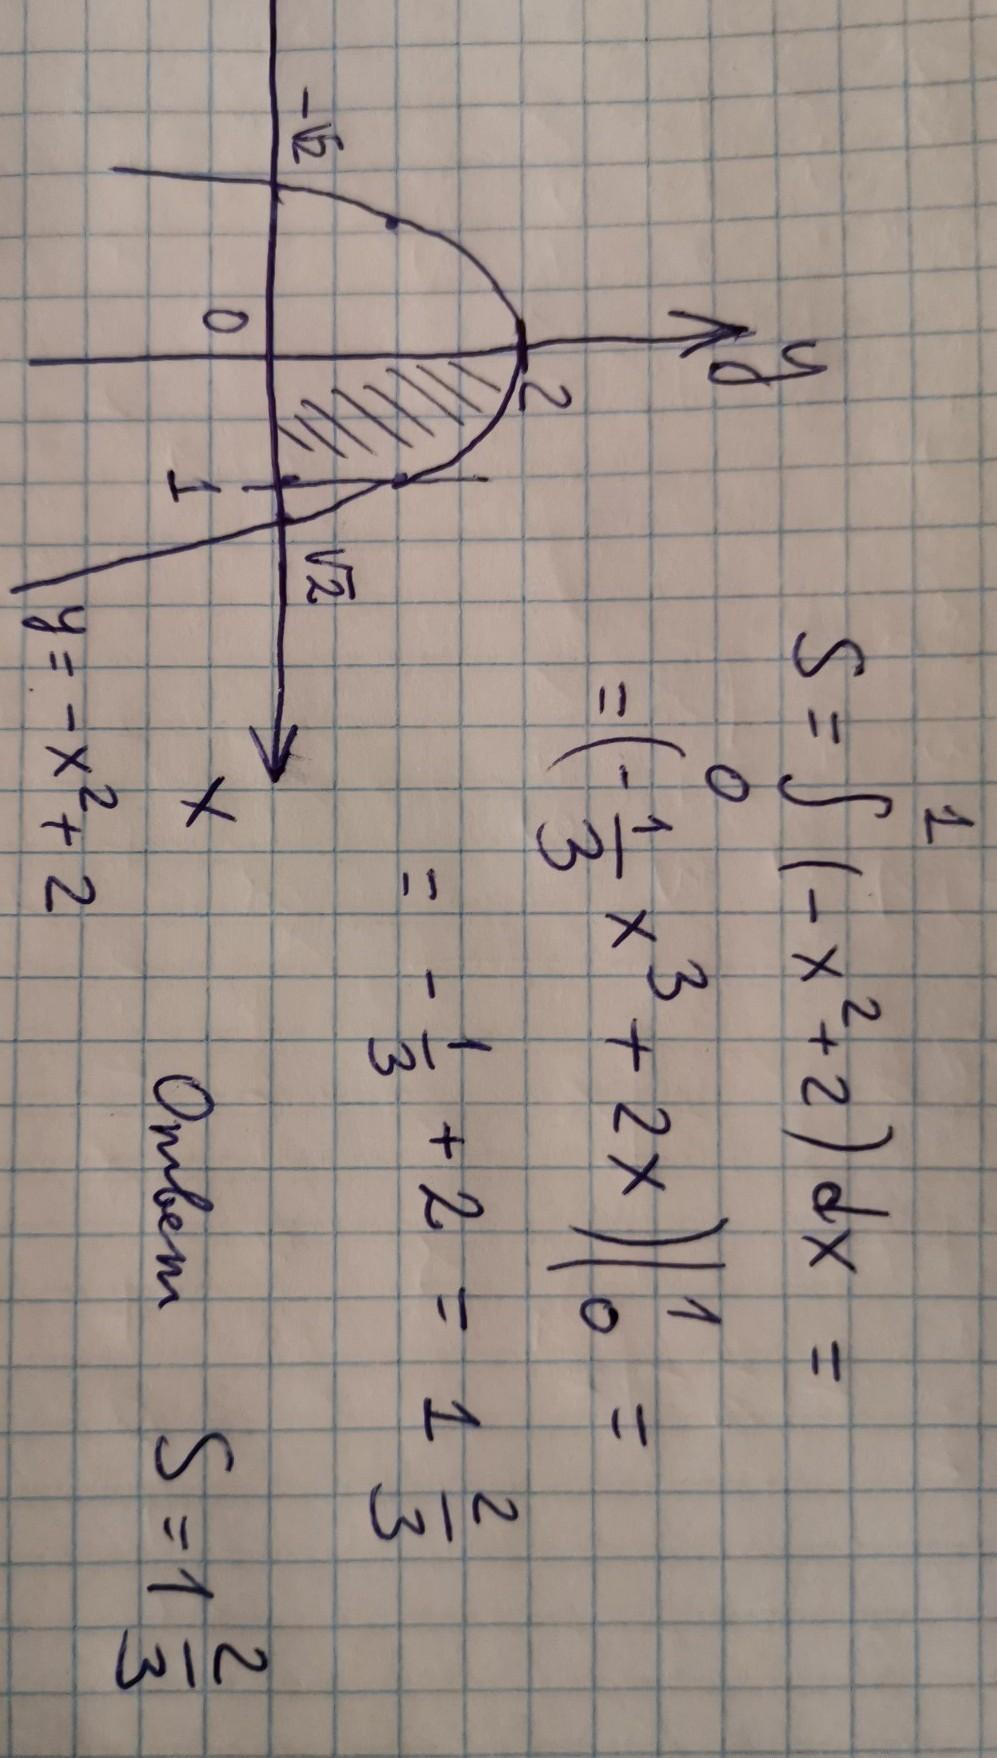 y
2
-√2
0
1
√2
x
y = -x² + 2
S = ∫₀¹ (-x² + 2) dx =
= (-1/3 x³ + 2x)|₀¹ =
= -1/3 + 2 = 1 2/3
Ответ S = 1 2/3